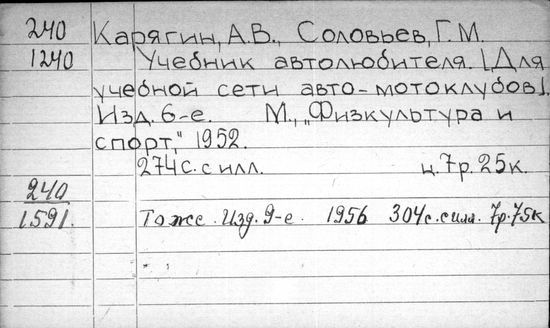 240 Карягин, А.В., Соловьев, Г.М.
1240 Учебник автолюбителя. [Для
учебной сети авто-мотоклубов].
Изд. 6-е. М., „Физкультура и
спорт," 1952.
274 с. с илл. ц. 7 р. 25 к.
240
1591. То же. Изд. 9-е. 1956 304 с. с илл. 7р. 75к